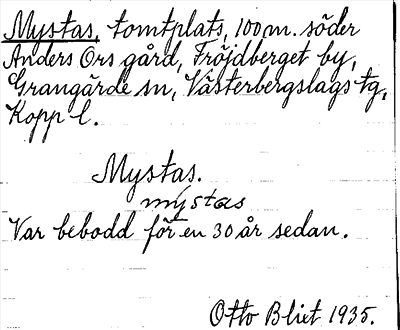 Mystas, tomtplats, 100 m. söder
Anders Ors gård, Fröjdberget by,
Grangärde sn, Västerbergslags tg,
Kopp l.
Mystas.
mýstas
Var bebodd för en 30 år sedan.
Otto Blixt 1935.